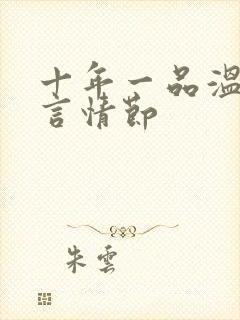 十年一品温
言情節
朱雲